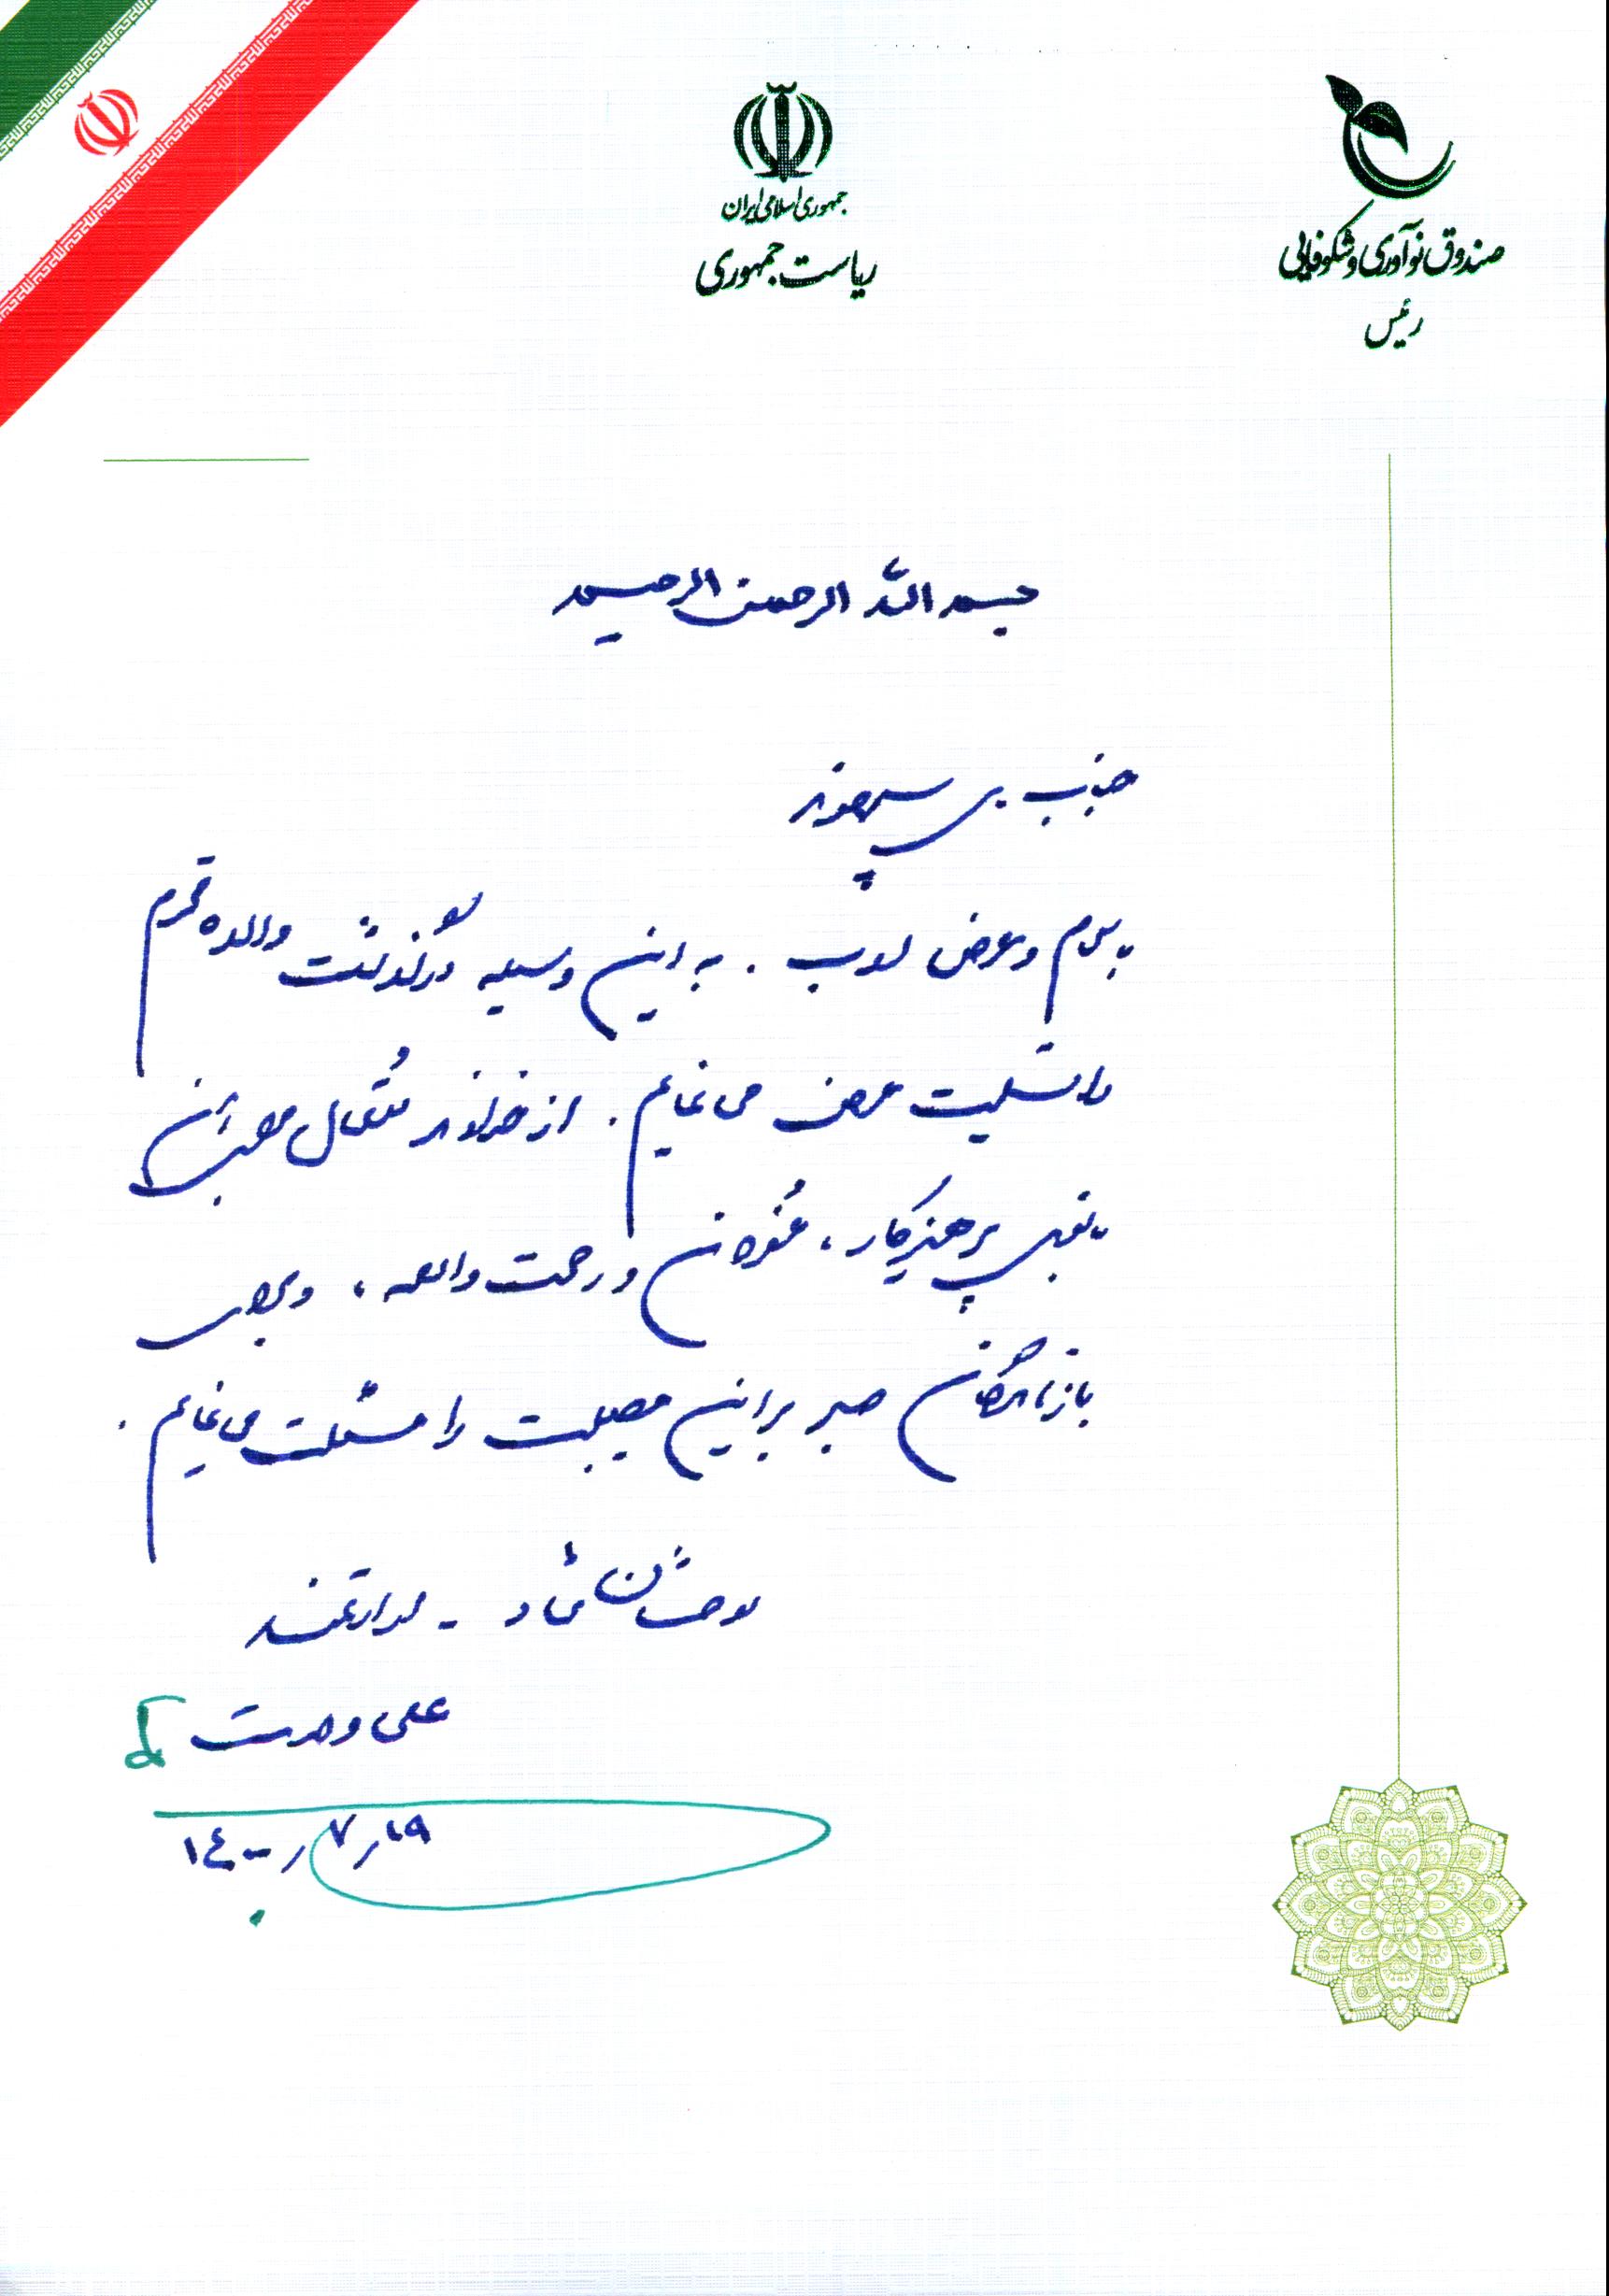 جمهوری اسلامی ایران
ریاست جمهوری
صندوق نوآوری و شکوفایی
رئیس
بسم الله الرحمن الرحیم
جناب سپهوند
با سلام و عرض ادب . به این وسیله درگذشت والده محترم
را تسلیت عرض می نمایم . از خداوند متعال برای آن
پرهیزکار ، غفران و رحمت واسعه ، و برای
بازماندگان صبر بر این مصیبت را مسئلت می نمایم .
ارادتمند
علی وحدت
۱۹ / ۷ / ۱۴۰۰